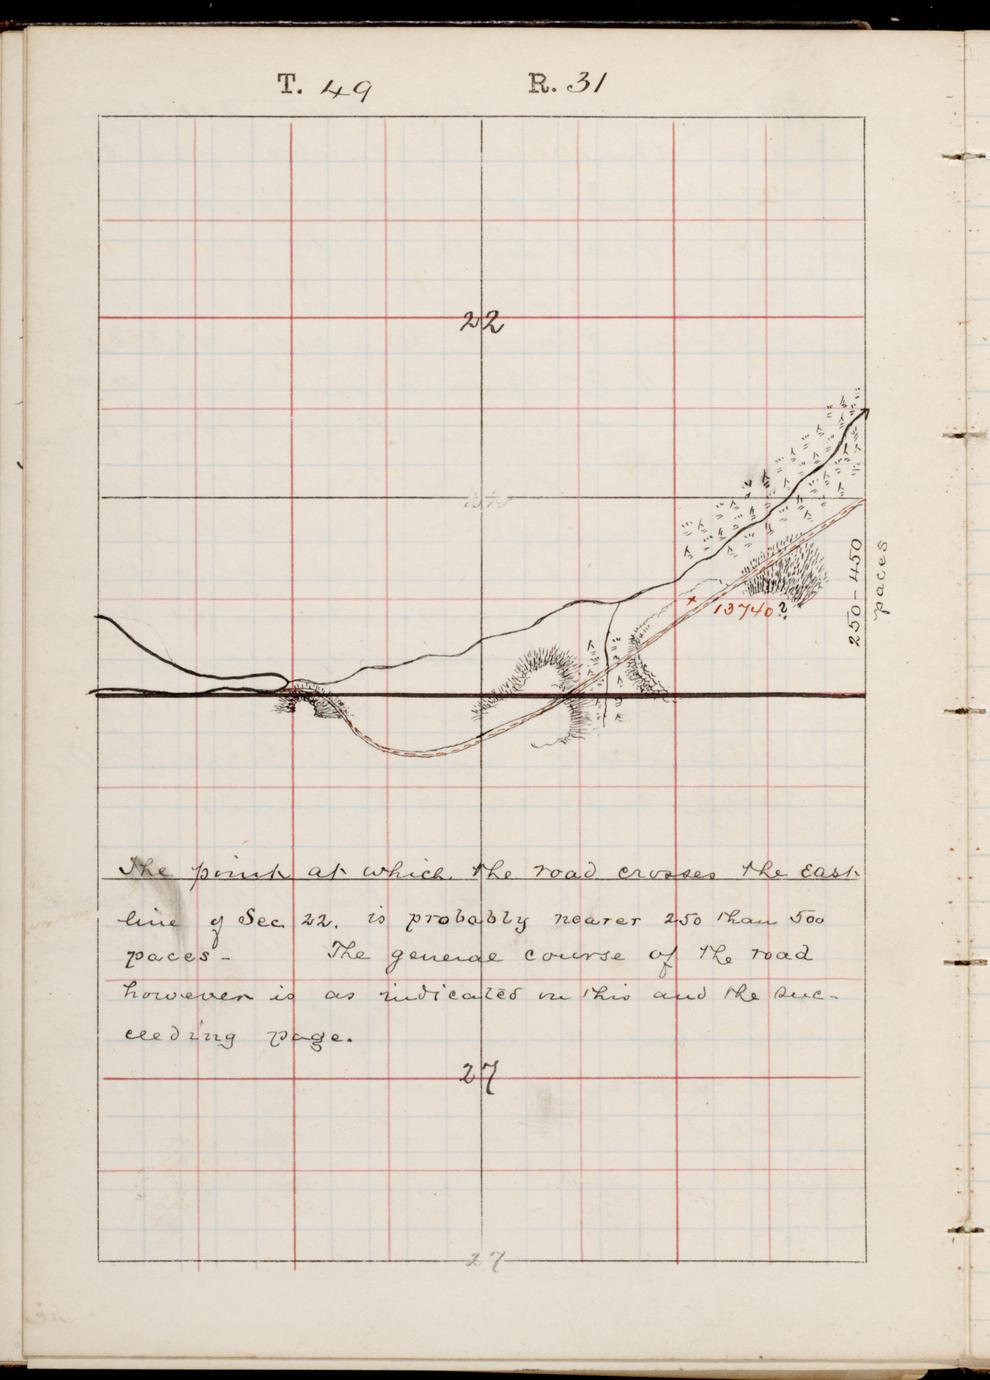 T. 49 R. 31
22
13740?
250-450
paces
The point at which the road crosses the East
line of Sec 22. is probably nearer 250 than 500
paces- The general course of the road
however is as indicated on this and the suc-
ceeding page.
27
27